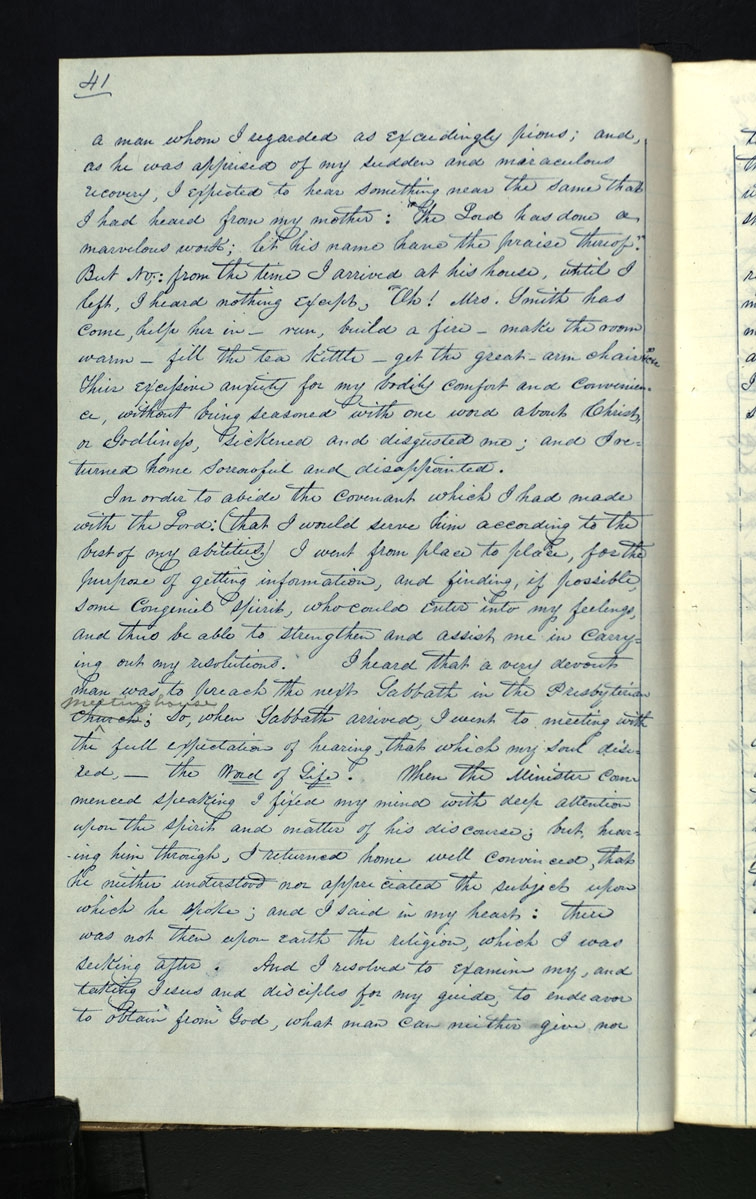 41
a man whom I regarded as exceedingly pious; and,
as he was apprised of my sudden and miraculous
recovery, I expected to hear something near the same that
I had heard from my mother: "The Lord has done a
marvelous work; let his name have the praise thereof."
But No,: from the time I arrived at his house, until I
left, I heard nothing except, "Oh! Mrs. Smith has
come, help her in — run, build a fire — make the room
warm — fill the tea kettle — get the great-arm chair &c"
Their excessive anxiety for my bodily comfort and convenien-
ce, without being seasoned with one word about Christ,
or Godliness, sickened and disgusted me; and I re-
turned home sorrowful and disappointed.
In order to abide the covenant which I had made
with the Lord: (that I would serve him according to the
best of my abilities) I went from place to place, for the
purpose of getting information, and finding, if possible,
some congenial spirit, who could enter into my feelings,
and thus be able to strengthen and assist me in carry-
ing out my resolutions. I heard that a very devout
man was to preach the next Sabbath in the Presbyterian
meetinghouse
church; So, when Sabbath arrived, I went to meeting with
the full expectation of hearing, that which my soul desi-
red, — the Word of Life. When the Minister com
menced speaking I fixed my mind with deep attention
upon the spirit and matter of his discourse; but, hear-
-ing him through, I returned home well convinced, that
he neither understood nor appreciated the subject upon
which he spoke; and I said in my heart: there
was not then upon earth the religion, which I was
seeking after. And I resolved to examine my, and
taking Jesus and disciples for my guide, to endeavor
to obtain from God, what man can neither give nor